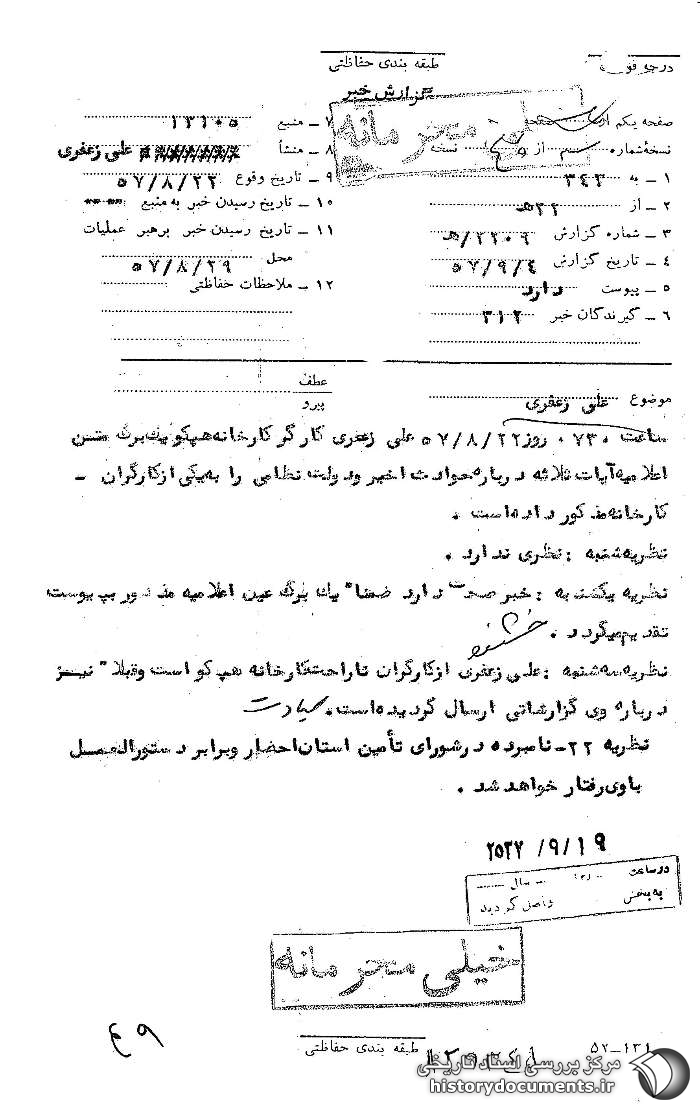 درجه فو
طبقه بندی حفاظتی
گزارش خبر
خیلی محرمانه
صفحه یکم از
نسخه شماره سه از نسخه
۱ ـ به ۳۴۲
۲ ـ از ۲۲ ه‍
۳ ـ شماره گزارش ۲۲۰۹/ه‍
۴ ـ تاریخ گزارش ۵۷/۹/۴
۵ ـ پیوست دارد
۶ ـ گیرندگان خبر ۳۱۲
۷ ـ منبع ۱۲۱۰۵
۸ ـ منشأ علی زعفری
۹ ـ تاریخ وقوع ۵۷/۸/۲۲
۱۰ ـ تاریخ رسیدن خبر به منبع
۱۱ ـ تاریخ رسیدن خبر برهبر عملیات
محل ۵۷/۸/۲۹
۱۲ ـ ملاحظات حفاظتی
موضوع علی زعفری
عطف
پیرو
ساعت ۰۷۳۰ روز ۵۷/۸/۲۲ علی زعفری کارگر کارخانه هپکو یک برگ متن
اعلامیه آیات ثلاثه درباره حوادث اخیر و دولت نظامی را به یکی از کارگران ـ
کارخانه مذکور داده است .
نظریه شنبه : نظری ندارد .
نظریه یکشنبه : خبر صحت دارد ضمنا" یک برگ عین اعلامیه مذکور بپیوست
تقدیم میگردد .
نظریه سه شنبه : علی زعفری از کارگران ناراحت کارخانه هپکو است و قبلا" نیز
درباره وی گزارشاتی ارسال گردیده است . سیادت
نظریه ۲۲ـ نامبرده در شورای تأمین استان احضار و برابر دستورالعمل
با وی رفتار خواهد شد .
۲۵۳۷/۹/۱۹
در ساعت سال
به بخش واصل گردید
خیلی محرمانه
۴۹
طبقه بندی حفاظتی
۵۲ـ۱۳۱
مرکز بررسی اسناد تاریخی
historydocuments.ir